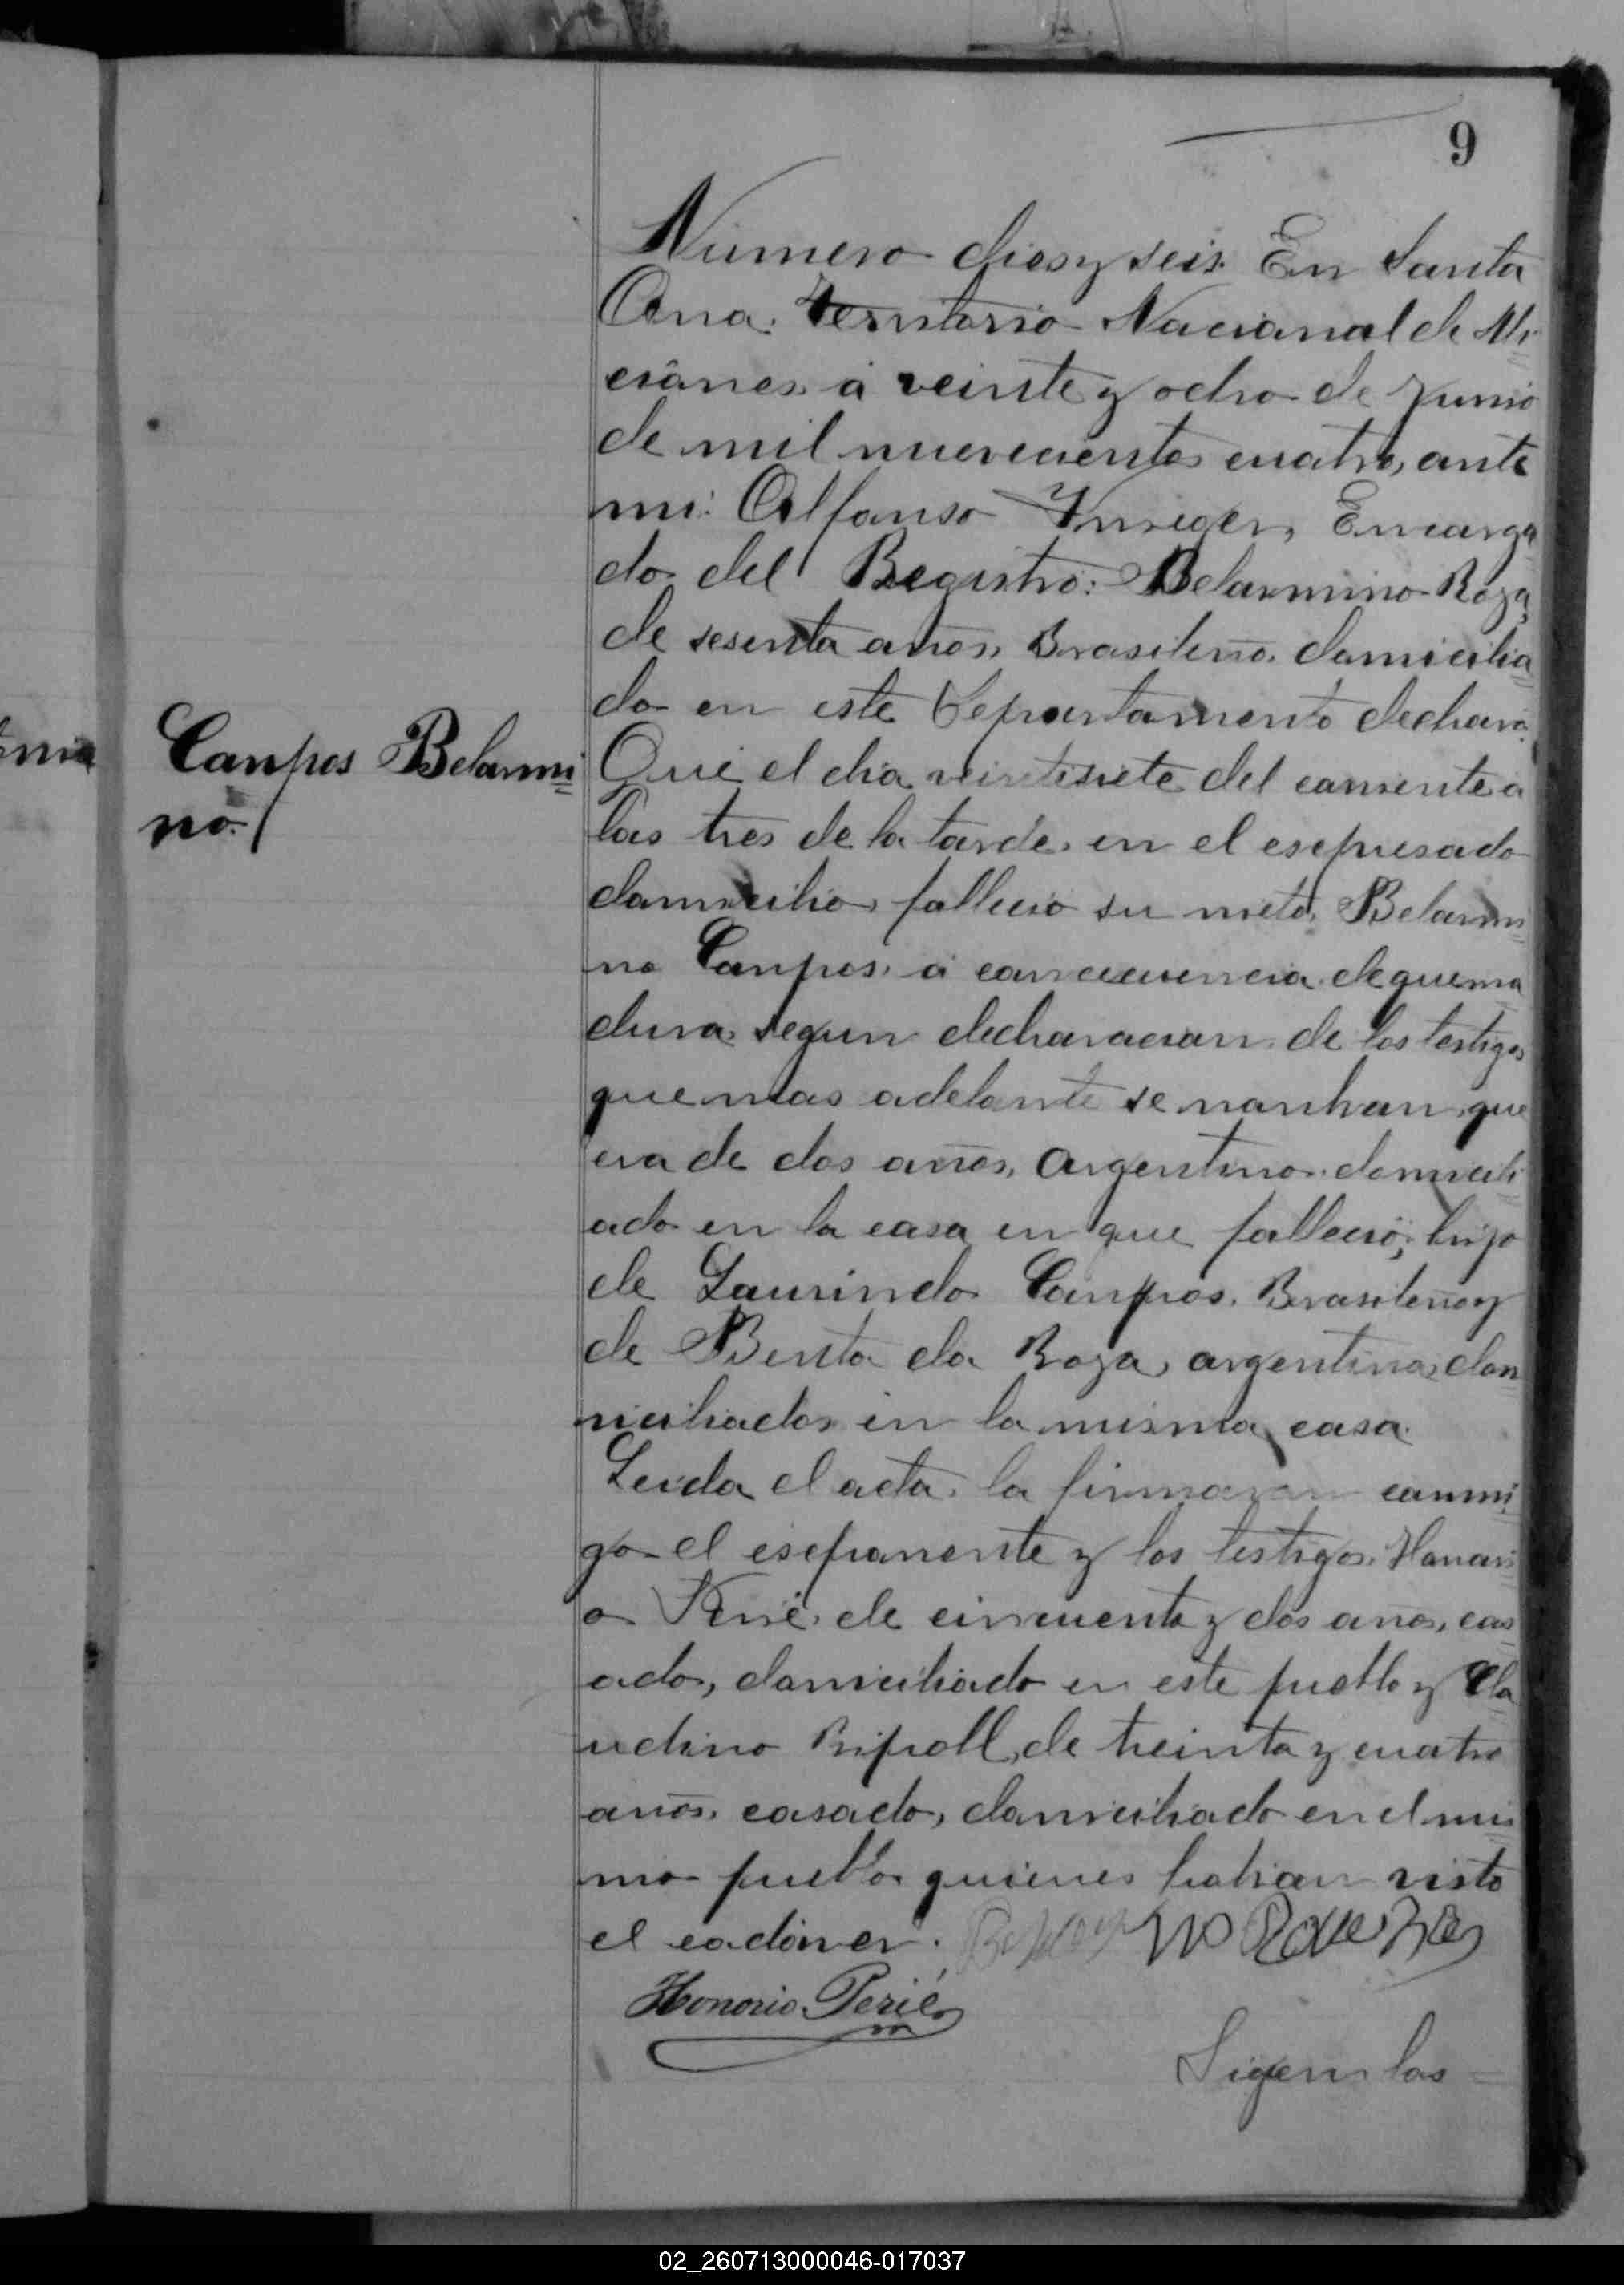 9
Número dies y seis. En Santa
Ana. Territorio Nacional de Mi-
ciones á veinte y ocho de Junio
de mil nuevecientos cuatro, ante
mi: Alfonso Encarga
do del Registro: Belarmino Roza,
de sesenta años, Brasileño, domicilia
do en este Departamento declaró:
Campos Belarmi
no.
Que el dia veintisiete del corriente a
las tres de la tarde, en el esepresado
domicilio, fallecio su nieto, Belarmi
no Campos, á concecuencia de quema
dura, segun declaracion de los testigos
que mas adelante se nonbran, que
era de dos años, Argentino, domicili
ado en la casa en que falleció; hijo
de Laurindo Campos, Brasileño y
de Benta da Roza, argentina, dom
iciliados in la misma casa.
Leida el acta, la firmaron conmi
go el eseponente y los testigos, Honori
o Perié, de cincuenta y dos años, cas
ado, domiciliado en este pueblo y Cla
udino Ripoll, de treinta y cuatro
años, casado, domiciliado en el mis
mo pueblo quienes habian visto
el cadáver.
Honorio Perié
Sigen las
02_260713000046-017037